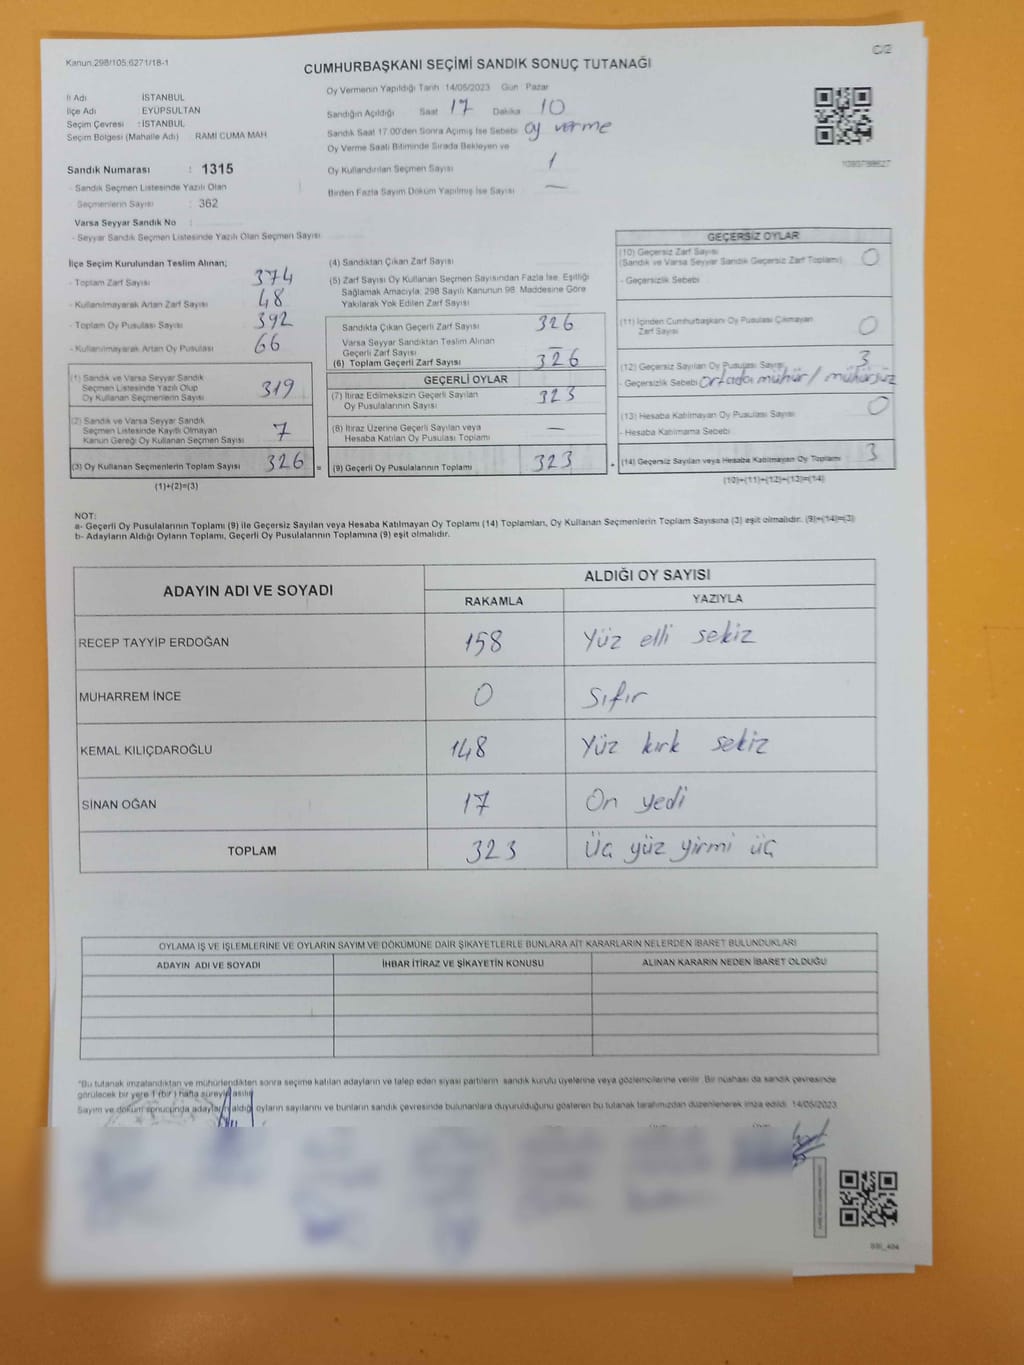 Kanun:298/105,6271/18-1
C/2
CUMHURBAŞKANI SEÇİMİ SANDIK SONUÇ TUTANAĞI
İl Adı İSTANBUL
İlçe Adı EYÜPSULTAN
Seçim Çevresi : İSTANBUL
Seçim Bölgesi (Mahalle Adı) RAMİ CUMA MAH
Sandık Numarası : 1315
- Sandık Seçmen Listesinde Yazılı Olan
- Seçmenlerin Sayısı : 362
Varsa Seyyar Sandık No :
- Seyyar Sandık Seçmen Listesinde Yazılı Olan Seçmen Sayısı
Oy Vermenin Yapıldığı Tarih 14/05/2023 Gün Pazar
Sandığın Açıldığı Saat 17 Dakika 10
Sandık Saat 17.00'den Sonra Açılmış İse Sebebi oy verme
Oy Verme Saati Bitiminde Sırada Bekleyen ve
Oy Kullandırılan Seçmen Sayısı 1
Birden Fazla Sayım Döküm Yapılmış İse Sayısı —
İlçe Seçim Kurulundan Teslim Alınan;
- Toplam Zarf Sayısı 374
- Kullanılmayarak Artan Zarf Sayısı 48
- Toplam Oy Pusulası Sayısı 392
- Kullanılmayarak Artan Oy Pusulası 66
(1) Sandık ve Varsa Seyyar Sandık
Seçmen Listesinde Yazılı Olup
Oy Kullanan Seçmenlerin Sayısı 319
(2) Sandık ve Varsa Seyyar Sandık
Seçmen Listesinde Kayıtlı Olmayan
Kanun Gereği Oy Kullanan Seçmen Sayısı 7
(3) Oy Kullanan Seçmenlerin Toplam Sayısı 326 =
(1)+(2)=(3)
(4) Sandıktan Çıkan Zarf Sayısı
(5) Zarf Sayısı Oy Kullanan Seçmen Sayısından Fazla İse, Eşitliği
Sağlamak Amacıyla; 298 Sayılı Kanunun 98. Maddesine Göre
Yakılarak Yok Edilen Zarf Sayısı
Sandıkta Çıkan Geçerli Zarf Sayısı 326
Varsa Seyyar Sandıktan Teslim Alınan
Geçerli Zarf Sayısı —
(6) Toplam Geçerli Zarf Sayısı 326
GEÇERLİ OYLAR
(7) İtiraz Edilmeksizin Geçerli Sayılan
Oy Pusulalarının Sayısı 323
(8) İtiraz Üzerine Geçerli Sayılan veya
Hesaba Katılan Oy Pusulası Toplamı —
(9) Geçerli Oy Pusulalarının Toplamı 323
GEÇERSİZ OYLAR
(10) Geçersiz Zarf Sayısı
(Sandık ve Varsa Seyyar Sandık Geçersiz Zarf Toplamı) 0
- Geçersizlik Sebebi
(11) İçinden Cumhurbaşkanı Oy Pusulası Çıkmayan
Zarf Sayısı 0
(12) Geçersiz Sayılan Oy Pusulası Sayısı 3
- Geçersizlik Sebebi ortada mühür / mühürsüz
(13) Hesaba Katılmayan Oy Pusulası Sayısı 0
- Hesaba Katılmama Sebebi
(14) Geçersiz Sayılan veya Hesaba Katılmayan Oy Toplamı 3
(10)+(11)+(12)+(13)=(14)
NOT:
a- Geçerli Oy Pusulalarının Toplamı (9) ile Geçersiz Sayılan veya Hesaba Katılmayan Oy Toplamı (14) Toplamları, Oy Kullanan Seçmenlerin Toplam Sayısına (3) eşit olmalıdır. (9)+(14)=(3)
b- Adayların Aldığı Oyların Toplamı, Geçerli Oy Pusulalarının Toplamına (9) eşit olmalıdır.
ADAYIN ADI VE SOYADI
ALDIĞI OY SAYISI
RAKAMLA YAZIYLA
RECEP TAYYİP ERDOĞAN 158 Yüz elli sekiz
MUHARREM İNCE 0 Sıfır
KEMAL KILIÇDAROĞLU 148 Yüz kırk sekiz
SİNAN OĞAN 17 On yedi
TOPLAM 323 Üç yüz yirmi üç
OYLAMA İŞ VE İŞLEMLERİNE VE OYLARIN SAYIM VE DÖKÜMÜNE DAİR ŞİKAYETLERLE BUNLARA AİT KARARLARIN NELERDEN İBARET BULUNDUKLARI
ADAYIN ADI VE SOYADI İHBAR İTİRAZ VE ŞİKAYETİN KONUSU ALINAN KARARIN NEDEN İBARET OLDUĞU
"Bu tutanak imzalandıktan ve mühürlendikten sonra seçime katılan adayların ve talep eden siyasi partilerin sandık kurulu üyelerine veya gözlemcilerine verilir. Bir nüshası da sandık çevresinde
görülecek bir yere 1 (bir) hafta süreyle asılır.
Sayım ve döküm sonucunda adayların aldığı oyların sayılarını ve bunların sandık çevresinde bulunanlara duyurulduğunu gösteren bu tutanak tarafımızdan düzenlenerek imza edildi. 14/05/2023